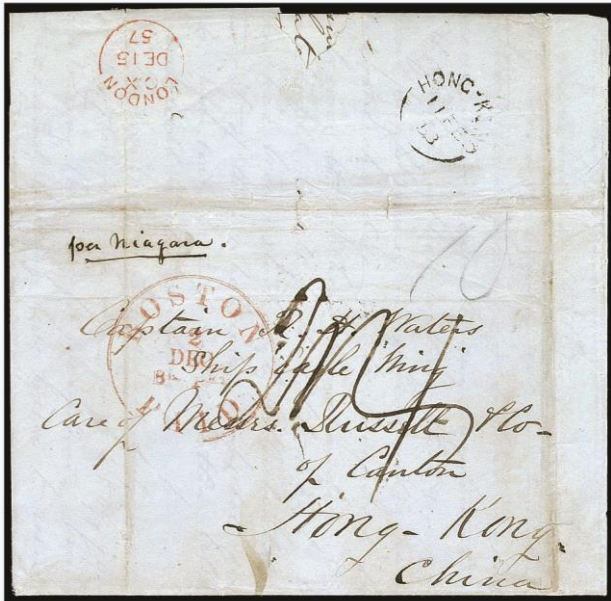 LONDON
CX
DE 15
57
HONG-KONG
per Niagara.
BOSTON
2
DEC
Br. Pkt.
5
Captain E. H. Waters
Ship Eagle Wing
Care of Messrs. Russell & Co-
of Canton
Hong-Kong
China